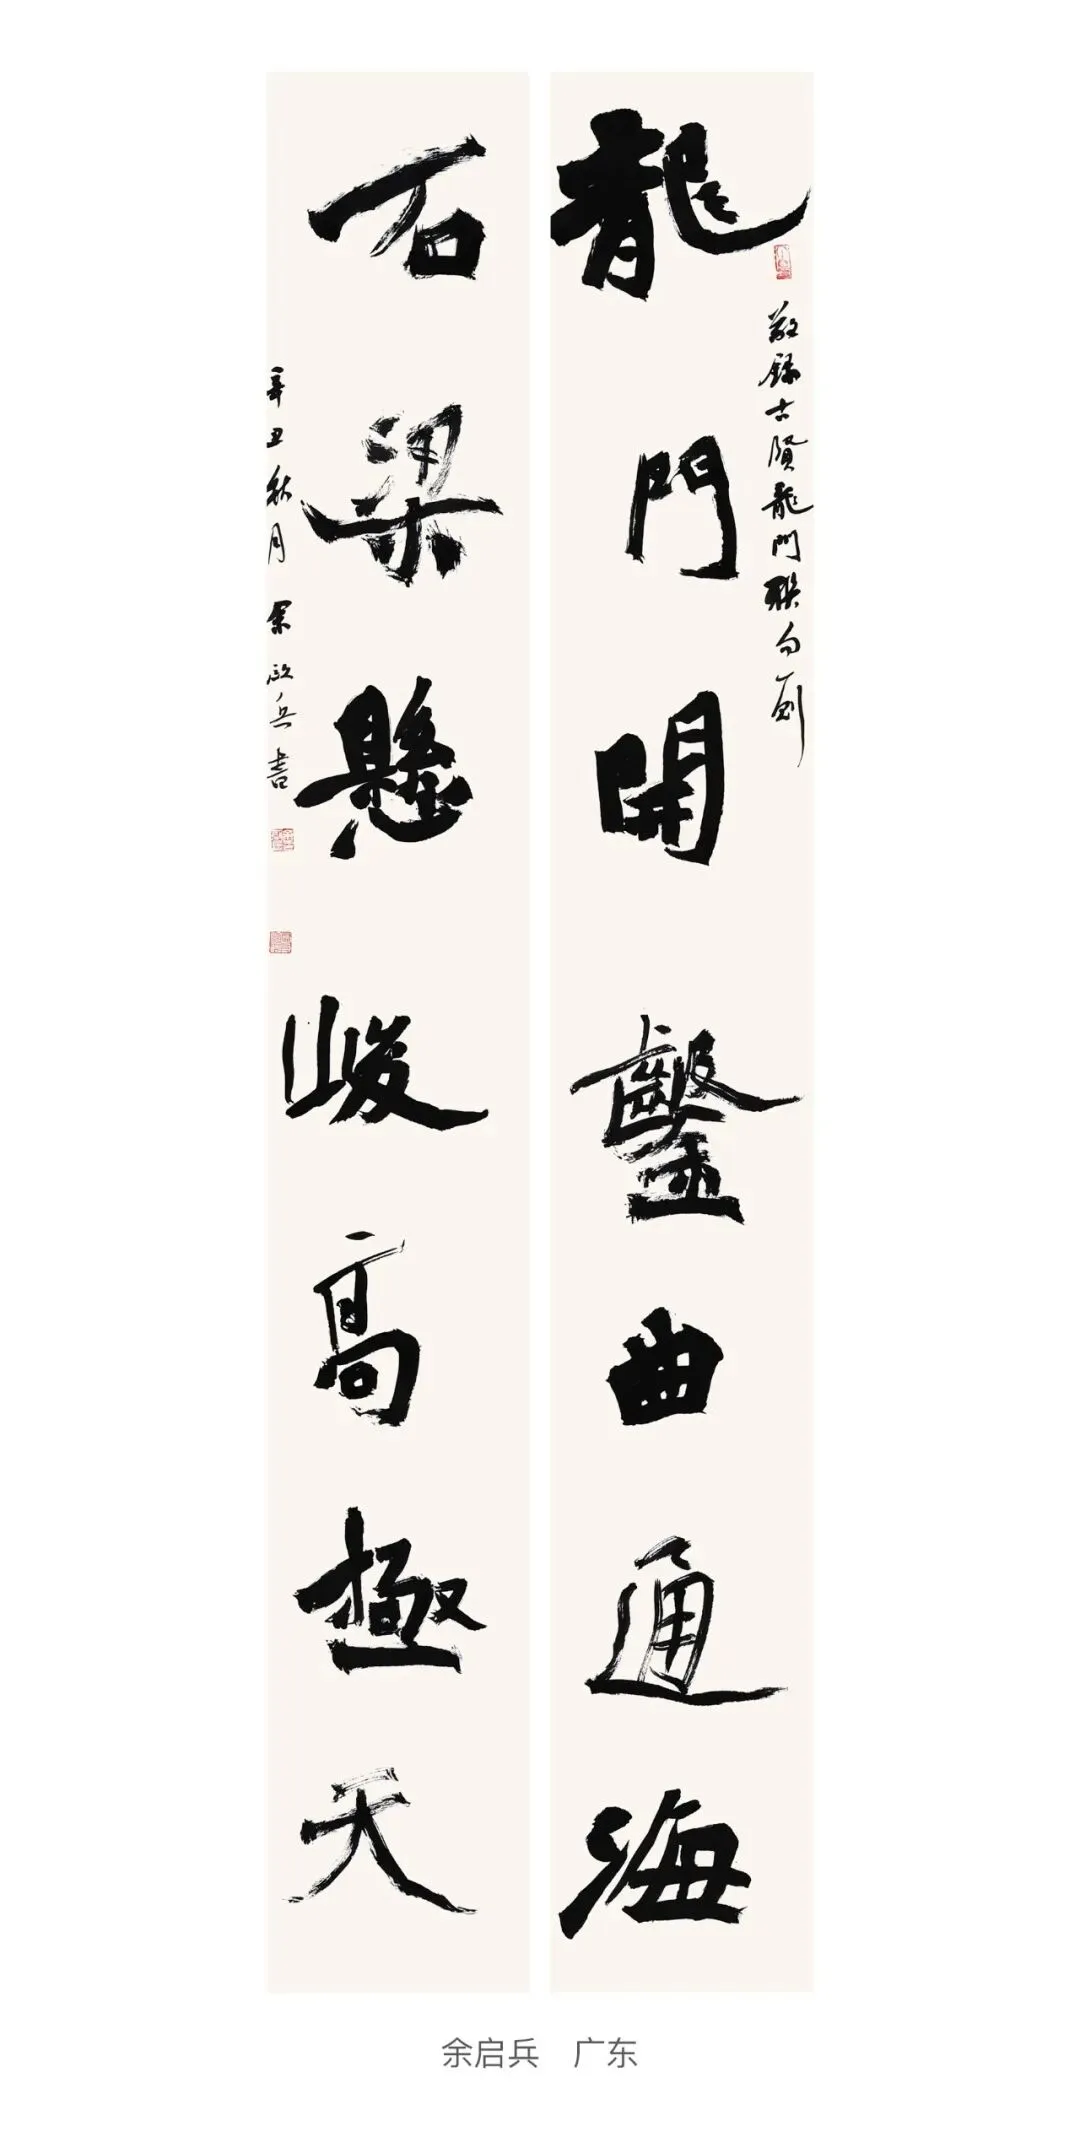 龍門開鑿曲通海
敬録古賢龍門聯句
石梁懸峻高極天
辛丑秋月 余啟兵書
余启兵 广东